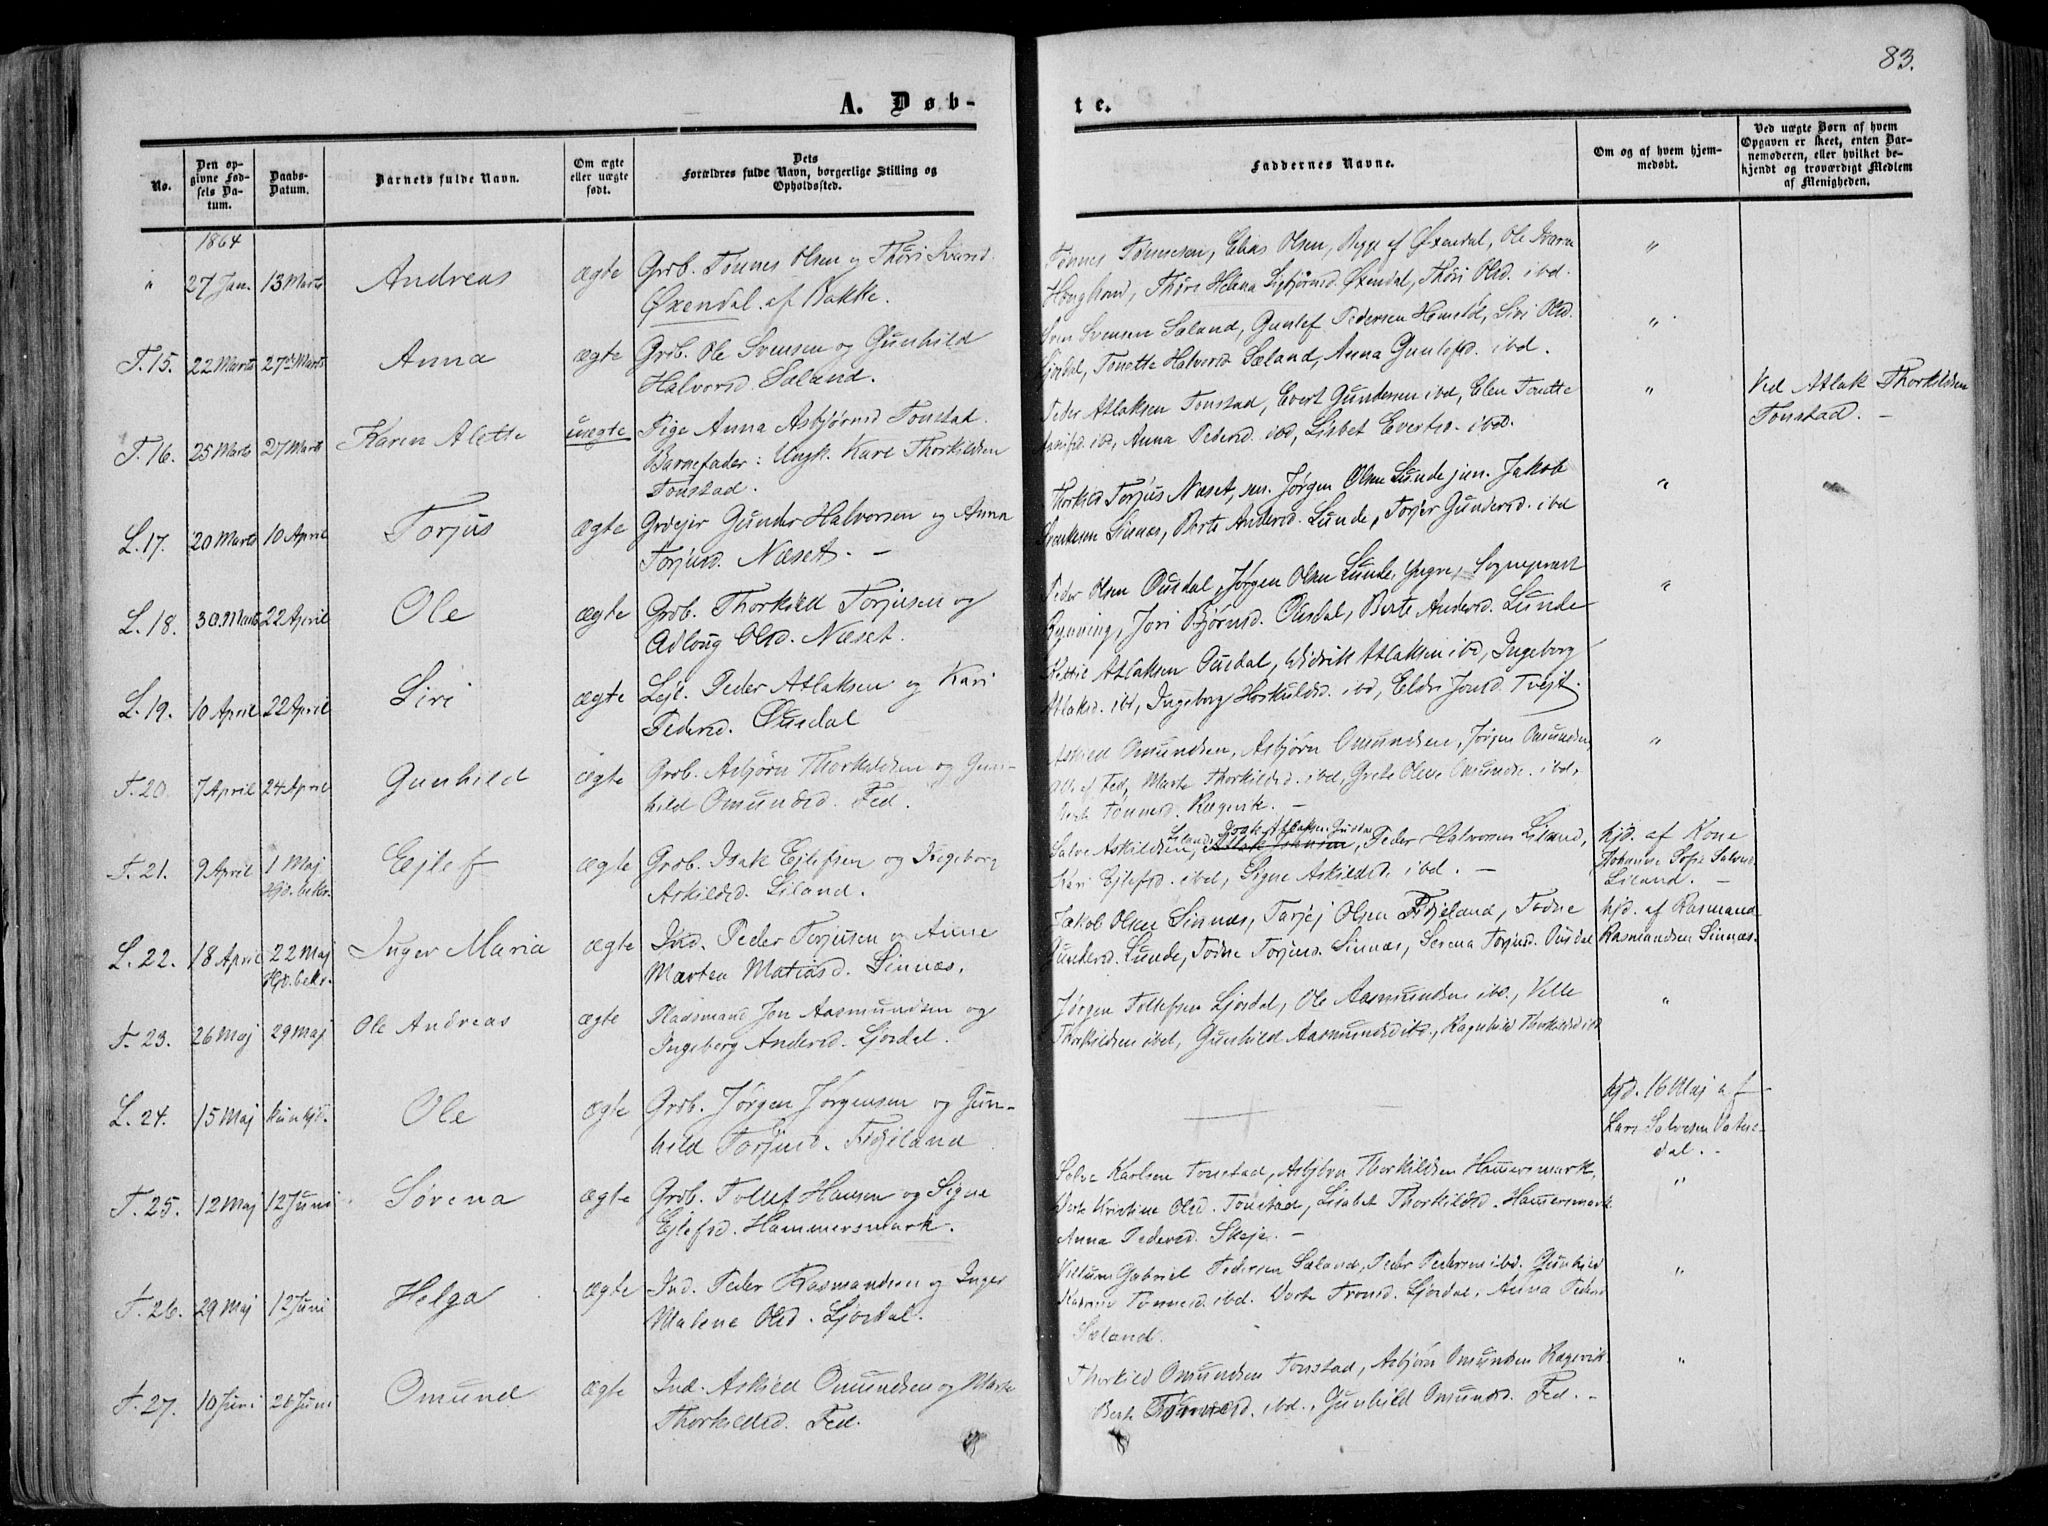 83.
A. Døb-
te.
No.
Den op-
givne Fød-
sels Da-
tum.
Daabs-
Datum.
Barnets fulde Navn.
Om ægte
eller uægte
født.
Dets
Forældres fulde Navn, borgerlige Stilling og
Opholdssted.
Faddernes Navne.
Om og af hvem hjem-
medøbt.
Ved uægte Børn af hvem
Opgaven er skeet, enten Bar-
nemoderen, eller hvilket be-
kjendt og troværdigt Medlem
af Menigheden.
1864
" 27 Jan. 13 Marts Andreas ægte Grdb. Tønnes Olsen og Thóri Ivarsd.
Øxendal af Bakke.
Tønnes Tønnesen, Elias Olsen, Begge af Øxendal, Ole
Thóre Helena Sigbjørnsd. Øxendal, Thóri Olsd. ibd. "
T. 15. 22 Marts 27de Marts Anna ægte Grdb. Ole Svensen og Gunhild
Halvorsd. Sæland.
Sven Svensen Sæland, Gunlef Pedersen Siri Olsd.
Tonette Halvorsd. Sæland, Anna Gunlefsd. ibd. "
T. 16. 25 Marts 27 Marts Karen Alette uægte Pige Anna Asbjørnsd Tonstad.
Barnefader: Ungk. Karl Thorkildsen
Tonstad.
Peder Atlaksen Tonstad, Evert Gundersen ibd, Elen Tonette
ibd, Anna Pedersd. ibd, Lisbet Evertsd. ibd. "
Ved Atlak Thorkildsen
Tonstad. –
L. 17. 20 Marts 10 April Torjus ægte Grdejer Gunder Halvorsen og Anna
Torjusd. Næset. –
Thorkild Torjus Næset, sen. Jørgen Olsen Lunde jun. Jakob
Sinnæs, Berte Andersd. Lunde, Torjer Gundersd. ibd "
L. 18. 30. Marts 22 April Ole ægte Grdb. Thorkild Torjusen og
Adloug Olsd. Næset.
Peder Olsen Ousdal, Jørgen Olsen Lunde, Yngre, Sogneprest
Rynning, Jóri Bjórnsd. Ousdal, Berte Andersd. Lunde "
L. 19. 10 April 22 April Siri ægte Lejl. Peder Atlaksen og Kari
Pedersd. Ousdal
Atlaksen Ousdal, Didrik Atlaksen ibd, Ingeborg
Atlaksd. ibd, Ingeborg Hoskuldsd. ibd, Eldri Jonsd. Tvejt. "
T. 20. 7 April 24 April Gunhild ægte Grdb. Asbjørn Thorkildsen og Gun-
hild Omundsd. Fed.
Askild Omundsen, Asbjørn Omundsen, Jørgen Omundsen,
Alle af Fed, Marte Thorkildsd. ibd, Grete Olene Omundsd. ibd,
Berte Tønnesd. Rægevik. – "
T. 21. 9 April 1 Maj
Hjd. bekr. Ejlef ægte Grdb. Isak Ejlefsen og Ingeborg
Askildsd. Liland.
Salve Askildsen, Liland, Atlaksen Peder Halvorsen Liland,
Kari Ejlefsd. ibd, Signe Askildsd. ibd. –
hjd. af Kone
Johanne Sofie Salvesd.
Liland. –
L. 22. 18 April 22 Maj
Hjd. bekr. Inger Maria ægte Ind. Peder Torjusen og Anne
Marten Matiasd. Sinnæs.
Jakob Olsen Sinnæs, Tarjej Olsen Fidjeland, Todne
Gundersd. Lunde, Todne Torjusd. Sinnæs, Serena Torjusd. Ousdal
hjd. af Rasmand
Rasmandsen Sinnæs.
T. 23. 26 Maj 29 Maj Ole Andreas ægte Pladsmand Jon Aasmundsen og
Ingeborg Andersd. Ljosdal.
Jørgen Tollefsen Ljosdal, Ole Aasmundsen ibd., Velle
Thorkildsen ibd, Gunhild Aasmundsd ibd., Ragnhild Thorkildsd ibd "
L. 24. 15 Maj kun hjd. Ole ægte Grdb. Jørgen Jørgensen og Gun-
hild Torjusd. Fidjeland
hjd. 16 Maj af
Lars Salvesen
dal. –
T. 25. 12 Maj 12 Juni Sørena ægte Grdb. Tollef Hansen og Signe
Ejlefsd. Hammersmark.
Salve Karlsen Tonstad, Asbjørn Thorkildsen Hamersmark,
Berte Kristine Olsd. Tonstad, Lisabet Thorkildsd. Hamersmark
Anna Pedersd. Skeje. – "
T. 26. 29 Maj 12 Juni Helga ægte Ind. Peder Rasmandsen og Inger
Malene Olsd. Ljosdal.
Villum Gabriel Pedersen Sæland, Peder Pedersen ibd. Gunhild
Katrine Tønnesd. ibd. Berte Tronsd. Ljosdal, Anna Pedersd
Sæland. "
T. 27. 10 Juni 26 Juni Omund ægte Ind. Askild Omundsen og Marte
Thorkildsd. Fed.
Thorkild Omundsen Tonstad, Asbjørn Omundsen Rægevik
Berte Tønnesd. ibd., Gunhild Omundsd. Fed. – "